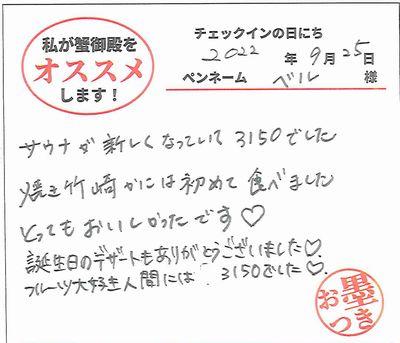 私が蟹御殿を
オススメ
します！
チェックインの日にち
2022年9月25日
ペンネーム ベル 様
サウナが新しくなっていて3150でした
焼き竹崎かには初めて食べました
とってもおいしかったです♡
誕生日のデザートもありがとうございました♡.
フルーツ大好き人間には 3150でした♡.
お墨つき